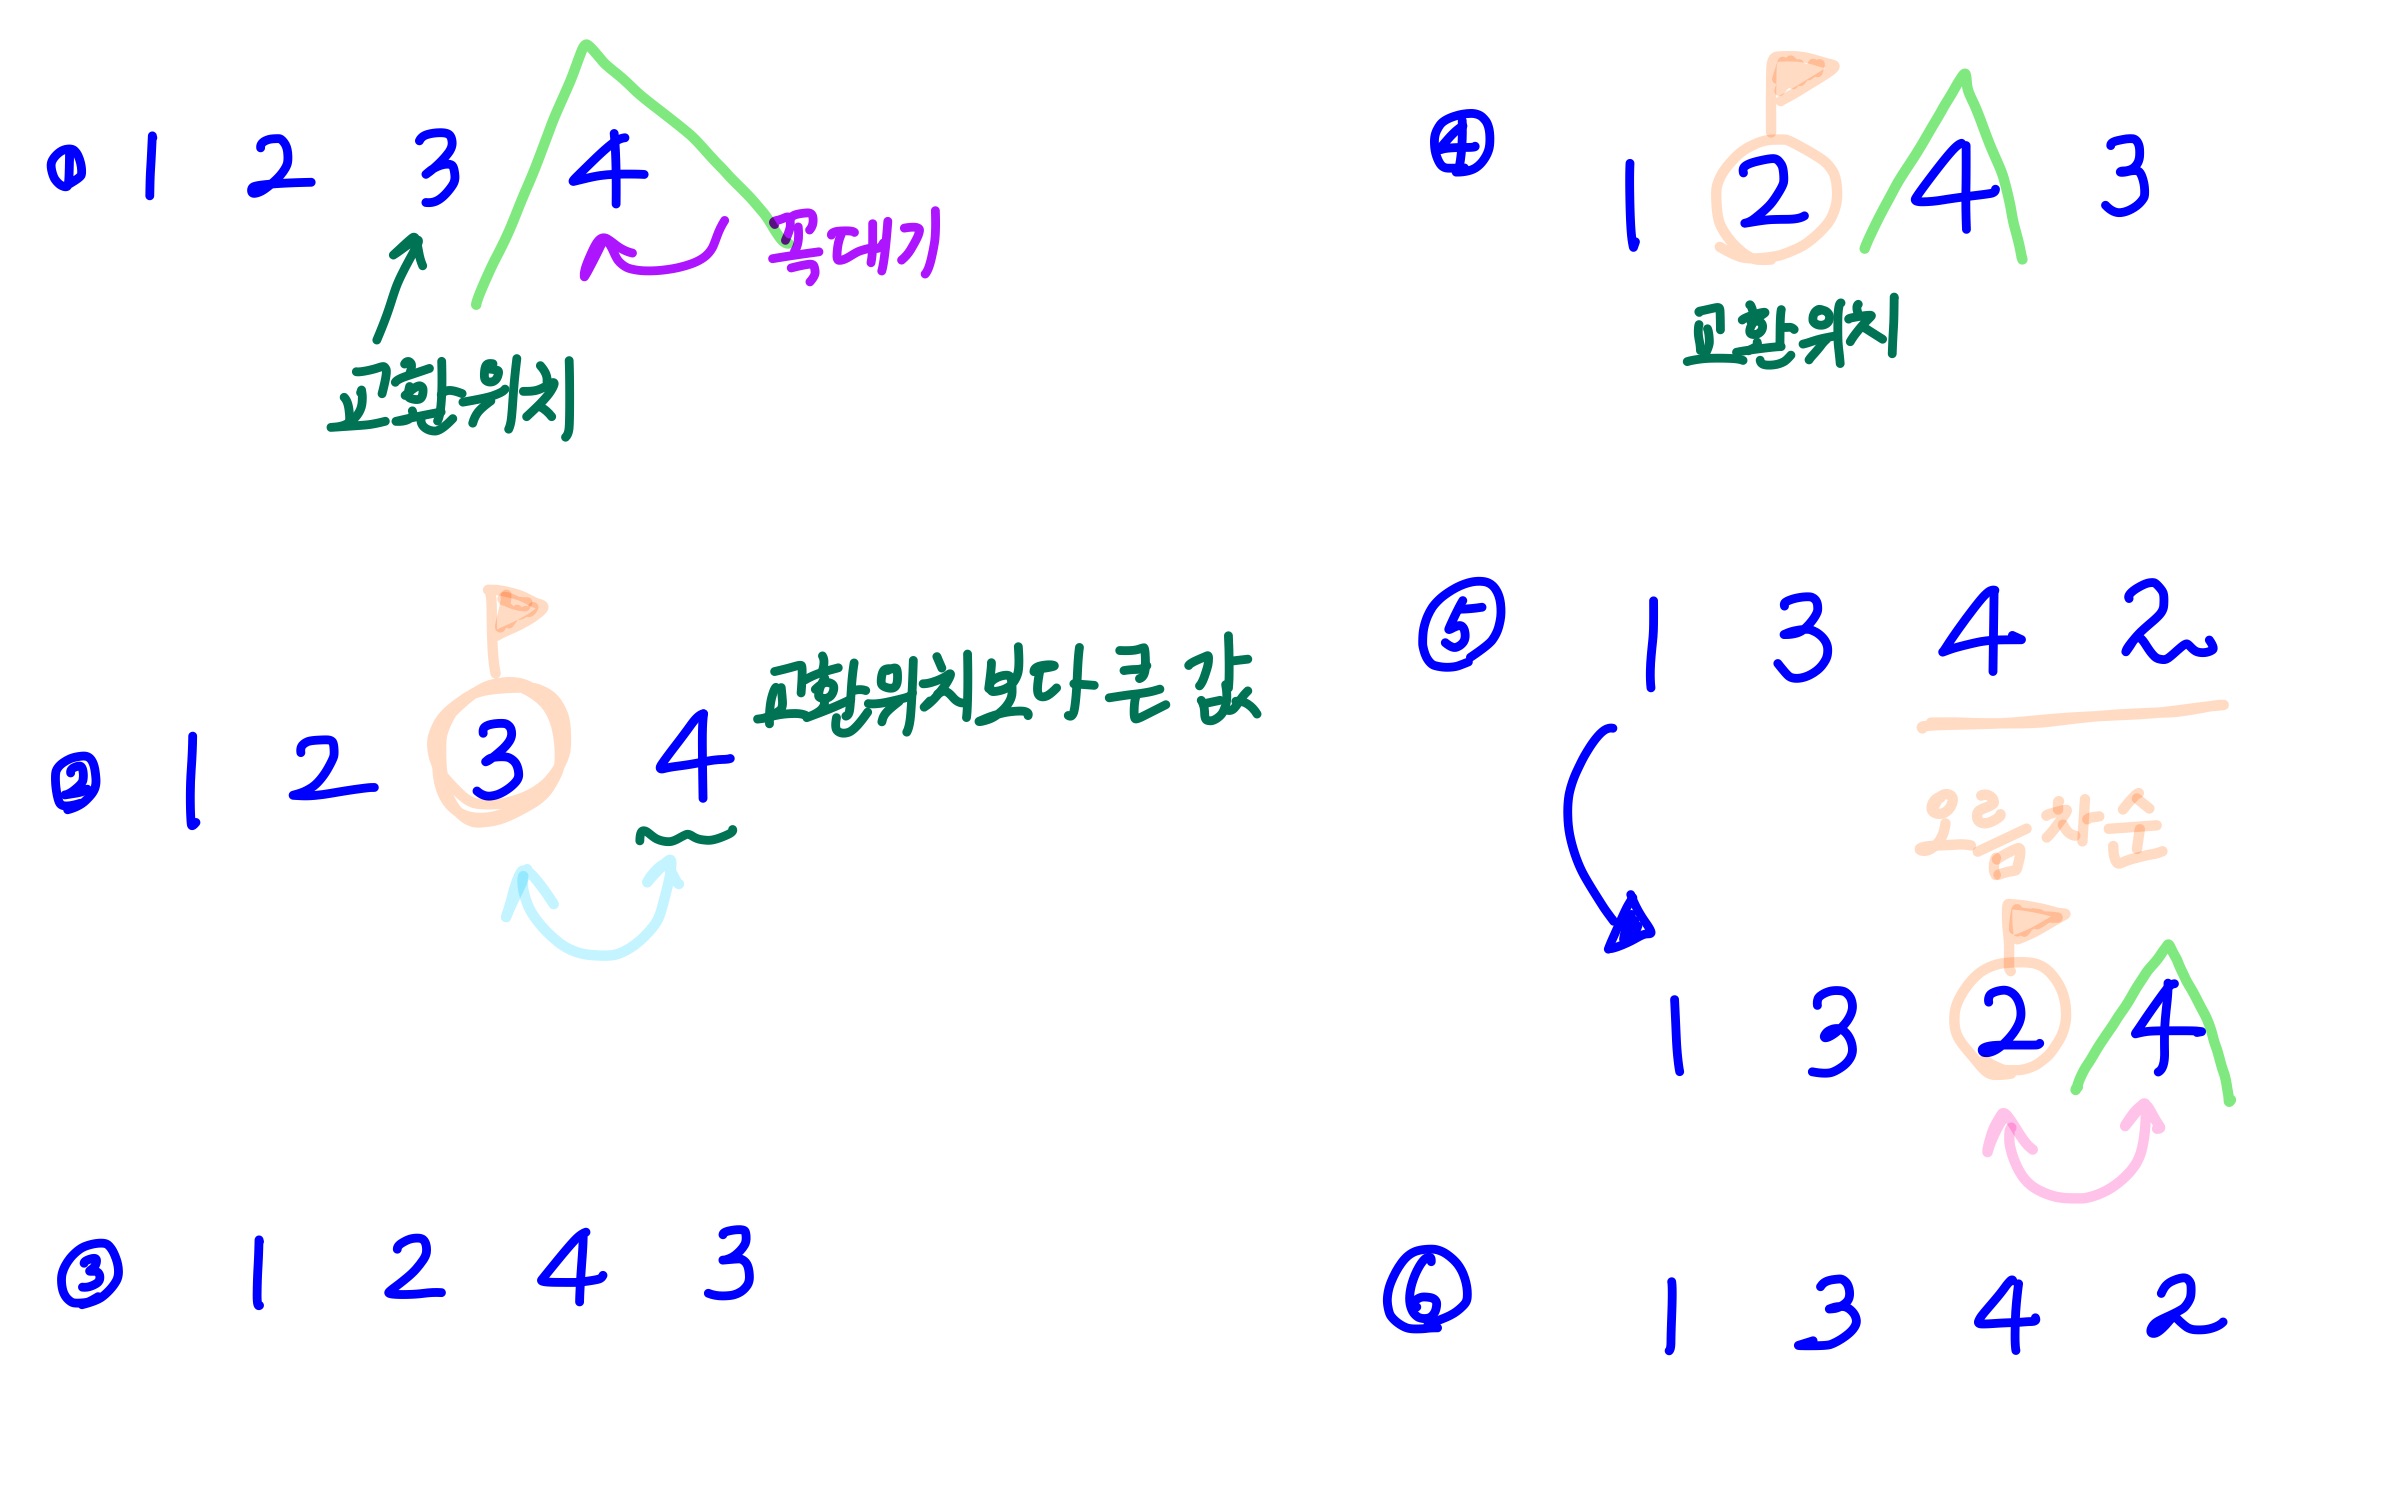 ① 1 2 3 4
꼭대기
교환위치
② 1 2 3 4
교환위치보다 큰 값
③ 1 2 4 3
④ 1 2 4 3
교환위치
⑤ 1 3 4 2
오름차순
1 3 2 4
⑥ 1 3 4 2